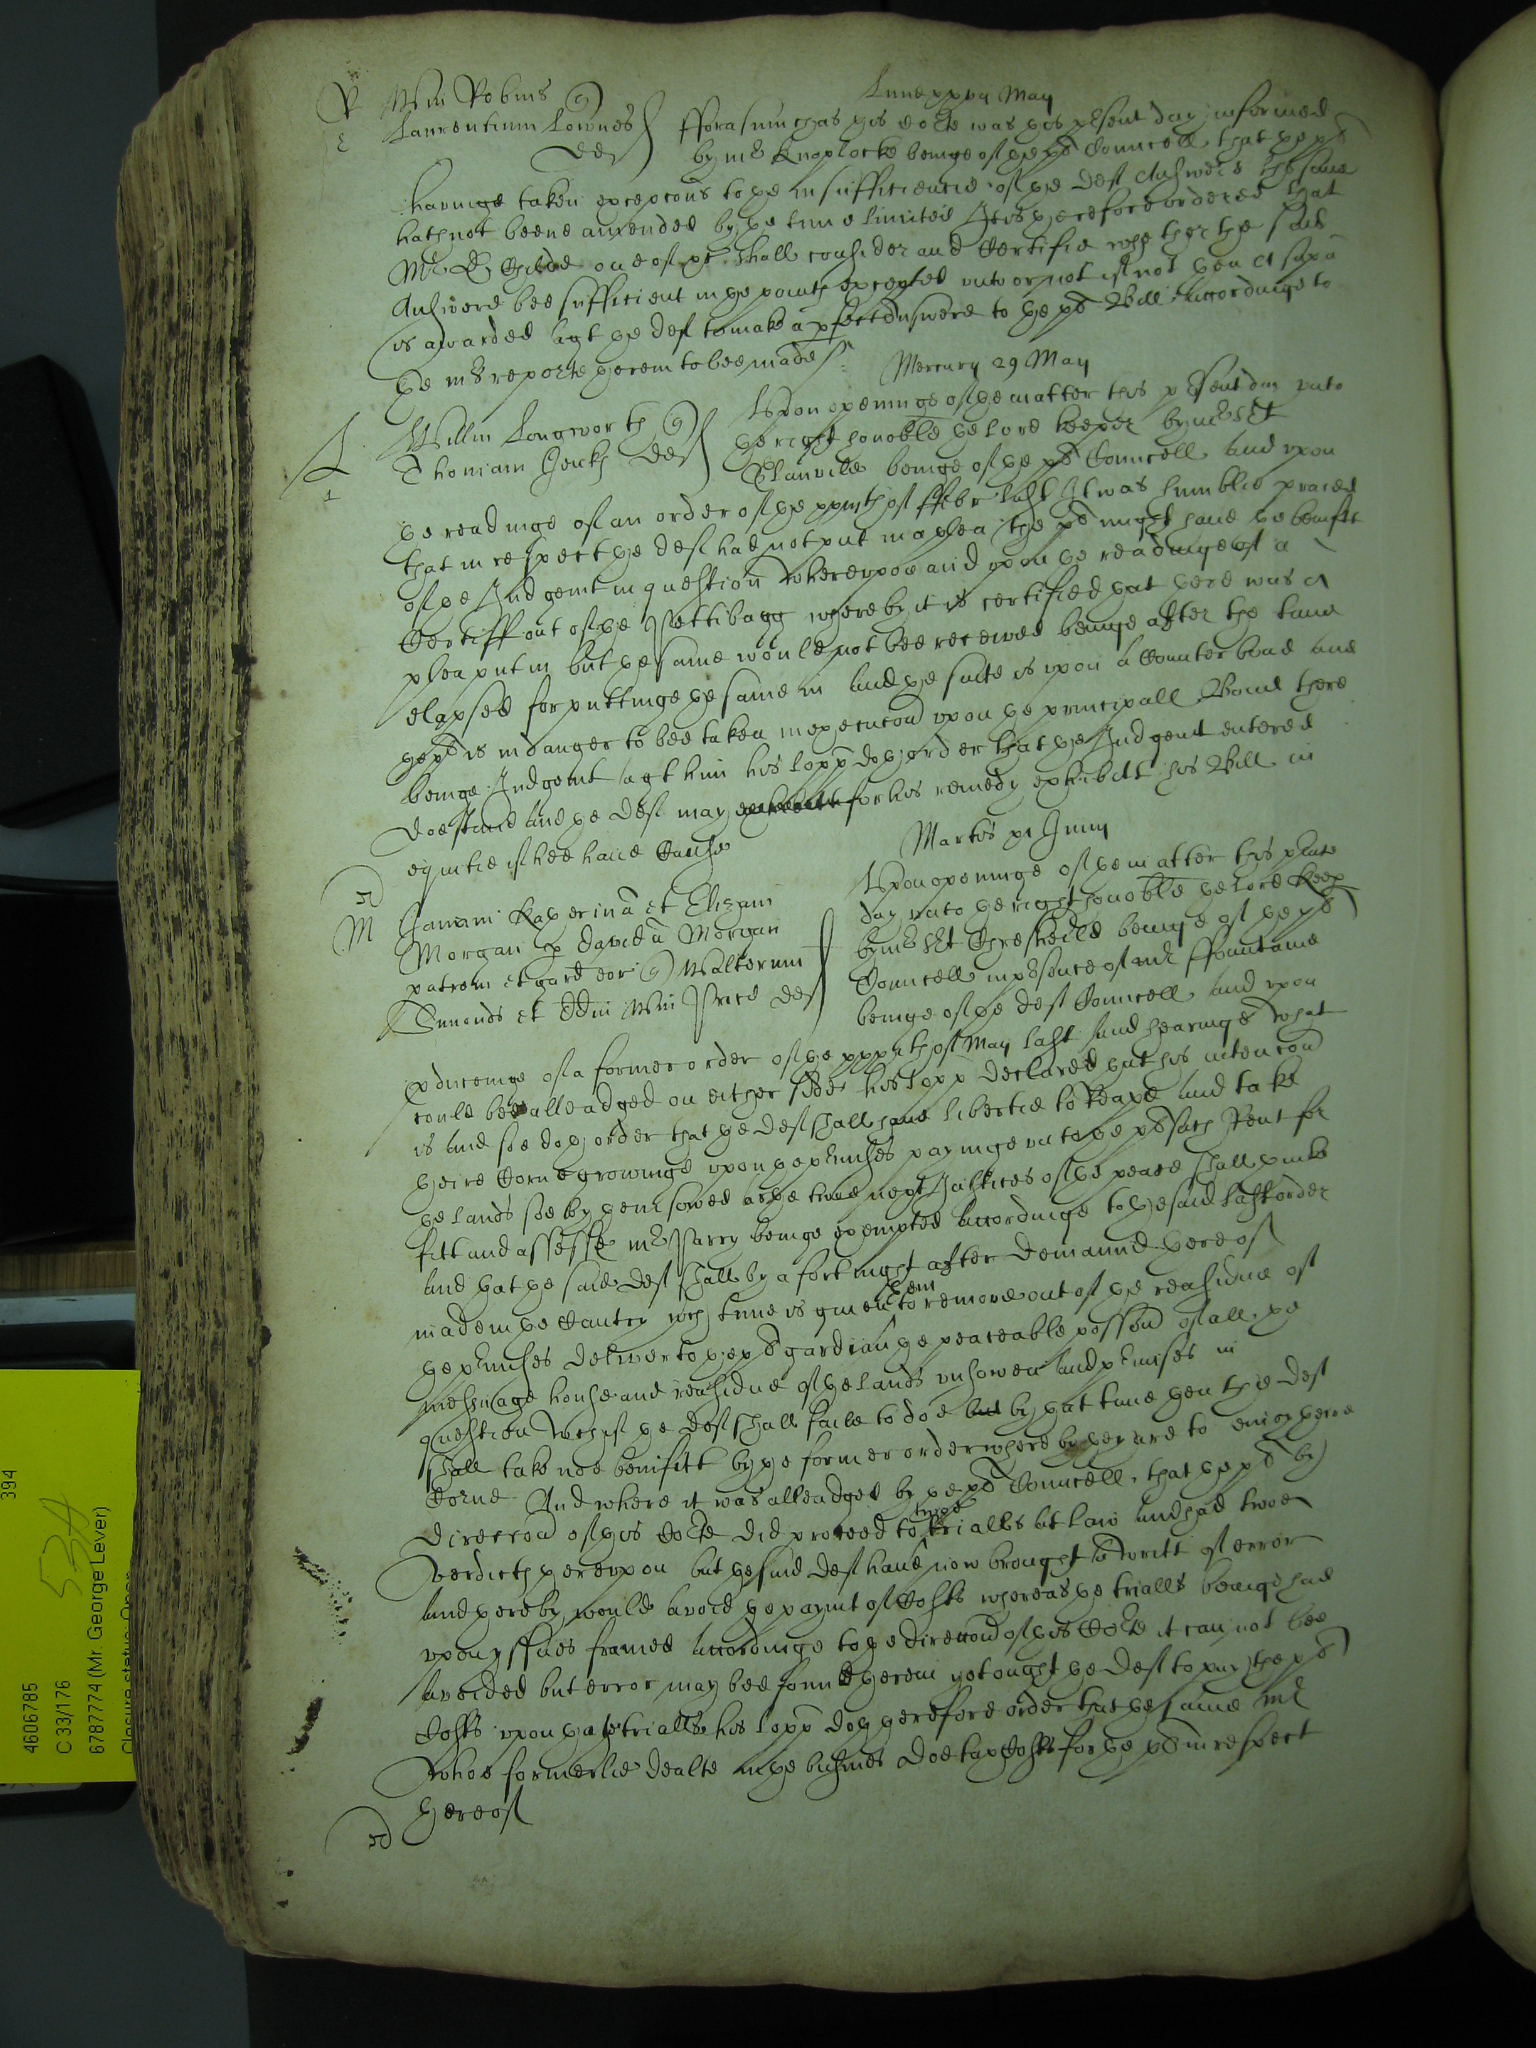 Lune xxvii May
R Willm Robins q
Laurentium Lownes def
fforasmuchas this Corte was this p̱sent day informed
by mr Knaplocke beinge of the plt Councell that the plt
havinge taken excepcons to the insufficiencie of the def Answere the same
hath not beene amended by the time limited It is therefore ordered that
Mr D one of the shall consider and certifie whether the said
Answere bee sufficient in the points excepted unto or not if not then A supa
is awarded agt the def to make a p̱fect answere to the plt Bill Accordinge to
the mr reporte therein to bee made
Mercury 29 May
L Willm Longworth q
Thomam def
Upon openinge of the matter this p̱sent day unto
the right honoble the lord keeper by mr srt
Glanvile beinge of the plt Councell and upon
the readinge of an order of the of ffebr last It was humblie praied
that in respect the def had not put in a plea the plt might have the benifit
of the Judgemt in question Whereupon and upon the readinge of a
Certiff out of the Pettibagg whereby it is certified that there was A
plea put in but the same would not bee received beinge after the time
elapsed for puttinge the same in And the suite is upon a Counterbond and
the plt is in danger to bee taken in execucon upon the principall Bond there
beinge Judgemt agt him his lopp doth order that the Judgemt entered
doe stand And the def may for his remedy exhibitt his Bill in
equitie if hee have Cause
Martis xi Junii
rd
M Janam Katherinā et Elizam
Morgan p̱ Davidū Morgan
patrem et gard eor q Walterum
Simonds et Willm Price def
Upon openinge of the matter this p̱nte
day unto the right honoble the lord Keep
by mr srt Thresheild beinge of the plt
Councell in p̱sence of mr ffountaine
beinge of the def Councell And upon
p̱ducinge of a former order of the of May last And hearinge what
could bee alleadged on either side his lopp declared that his intencon
is and soe doth order that the def shall have libertie to Reape and take
theire Corne growinge upon the p̱misses payinge unto the plt such Rent for
the lands soe by them sowed as the two next Justices of the peace shall thinke
fitt and assesse mr Parry beinge exempted Accordinge to the said last order
And that the said def shall by a fortnight after demannd thereof
made in the Cantry wch time is given
them
to remove out of the residue of
the p̱misses deliver to the plt gardian the peaceable possion of all the
messuage house and residue of the lands unsowen And p̱misses in
question Wch if the def shall faile to doe but by that time then the def
shall take noe benifitt by the former order whereby they are to enioy theire
Corne And where it was alleadged by the plt Councell that the plt by
direccon of this Corte did proceed to
twoe
trialls at law And had twoe
verdicts thereupon but the said def have now brought a Writt of error
And thereby would avoid the paymt of Costs whereas the trialls beinge had
upon yssues framed Accordinge to the direccon of this Corte it can not bee
avoided but error may bee found therein yet ought the def to pay the plt
Costs upon those trialls his lopp doth therefore order that the same mr
Whoe formerlie dealte in the busines doe tax Costs for the plt in respect
thereof
rd
4606785 394
C 33/176 53A
6787774 (Mr. George Lever)